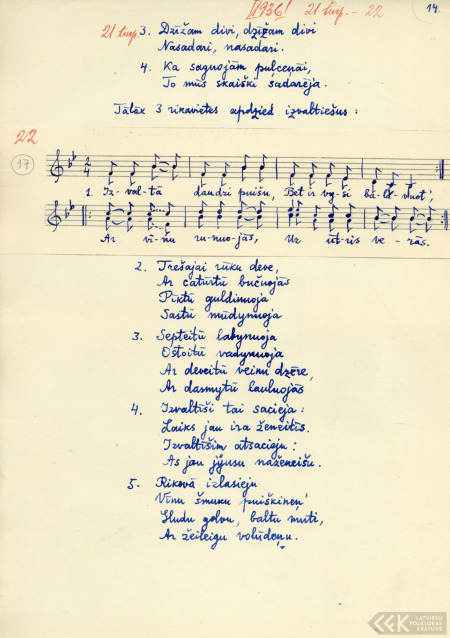 1936! 21 turp. - 22
14.
21 turp.
3. Dzīžam divi, dzīžam divi
Nasadari, nasadari.
4. Ka saguojām puļceņāi,
To mūs skaiški sadarēja.
Tālāk 3 rikavietes apdzied izvaltiešus:
22
17
1. Iz-val-tā daudzi puišu, Bet ir vy-si
Ar vī-nu ru-nuo-jās, Uz ut-rīs ve-rās.
2. Trešajai rūku deve,
Ar caturtū bučuojās
Pīktū guldinuoja
Sastū mūdynuoja
3. Septeitū labynuoja
Ostoitū vadynuoja
Ar deveitū veinu dzēre,
Ar dasmytū lauluojās
4. Izvaltīši tai sacieja:
Laiks jau ira ženeitīs.
Izvaltīšim atsacieju:
As jau jyusu naženeišu.
5. Rikovā izlasieju
Vīnu šmuku puiškineņ'
Gludu golvu, baltu muti,
Ar žeileigu volūdeņu.
LATVIEŠU
FOLKLORAS
KRĀTUVE